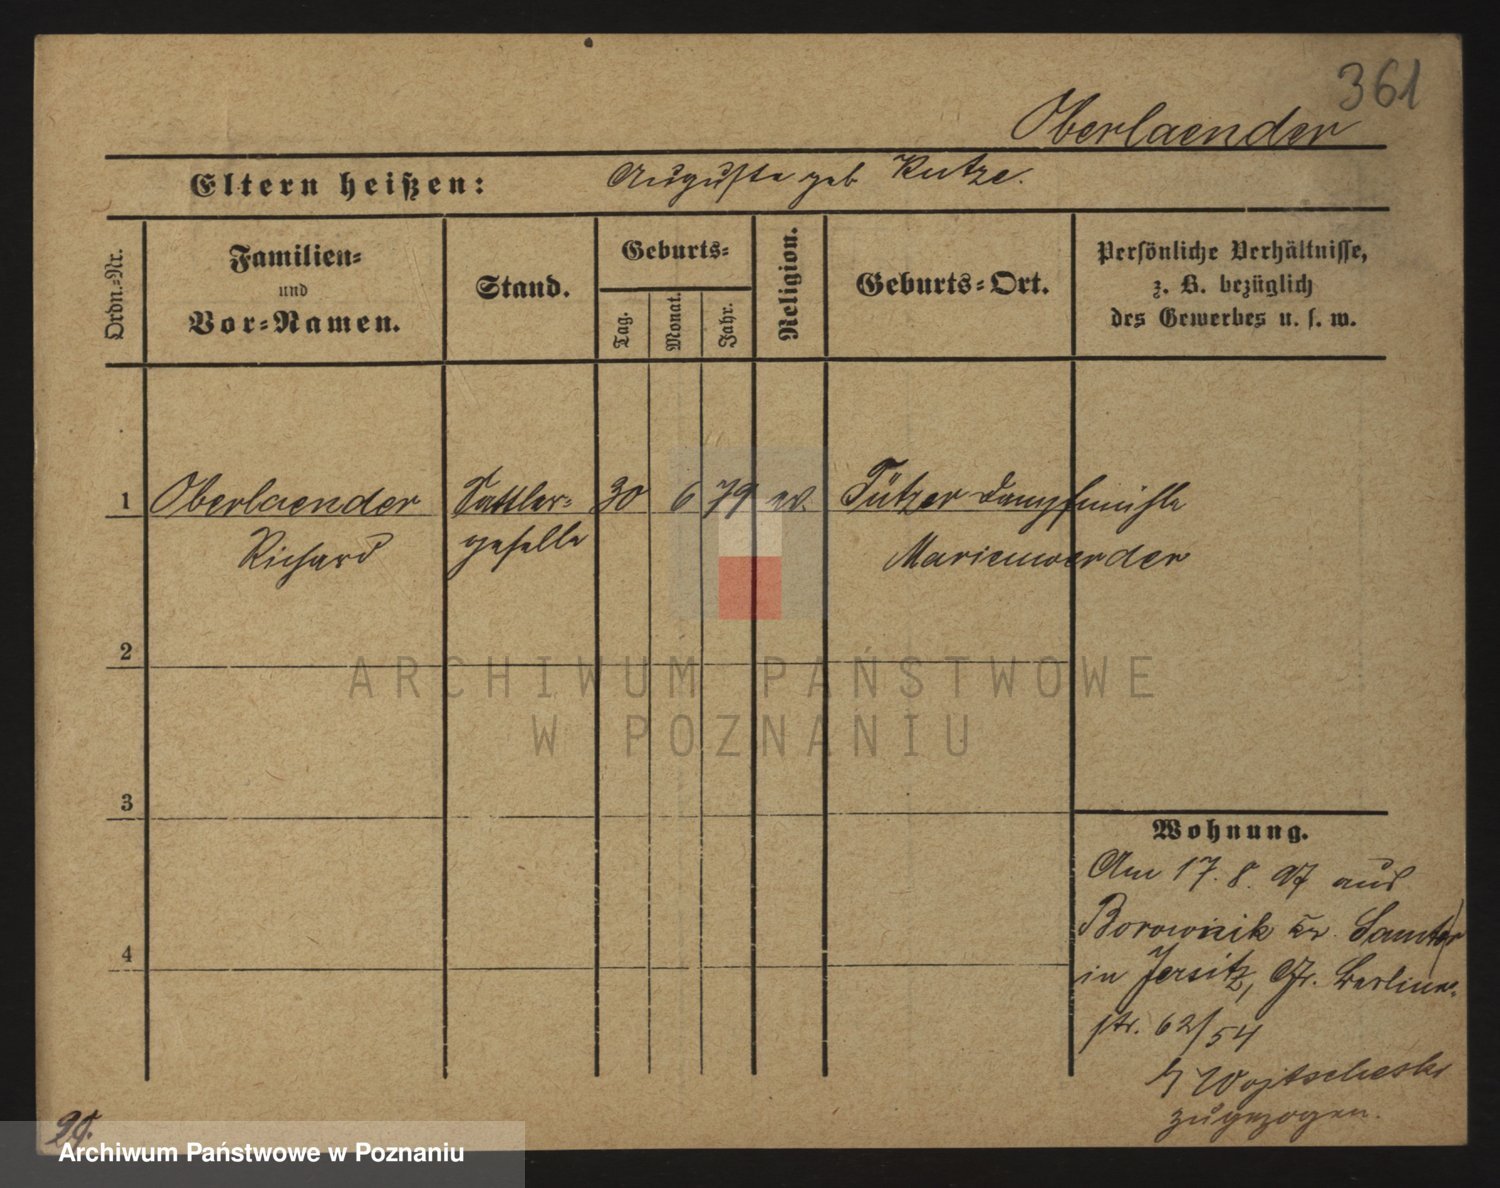 361
Oberlaender
Eltern heißen: Auguste geb Kutze.
Ordn.-Nr.
Familien-
und
Vor-Namen.
Stand.
Geburts-
Tag.
Monat.
Jahr.
Religion.
Geburts-Ort.
Persönliche Verhältnisse,
z. B. bezüglich
des Gewerbes u. s. w.
1 Oberlaender Sattler- 30 6 79 ev. Tützer Dampfmühle
Richard geselle Marienwerder
2
3
4
ARCHIWUM PAŃSTWOWE
W POZNANIU
Wohnung.
Am 17. 8. 97 aus
Borownik Kr. Samter
in Jersitz, Gr. Berliner-
str. 62/54
b/ Wojtscheski
zugezogen.
Archiwum Państwowe w Poznaniu